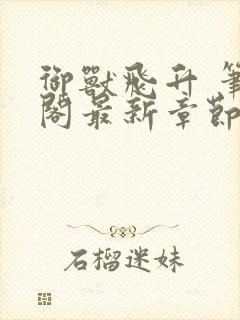 御獸飛升 筆
閣最新章節
石榴迷妹